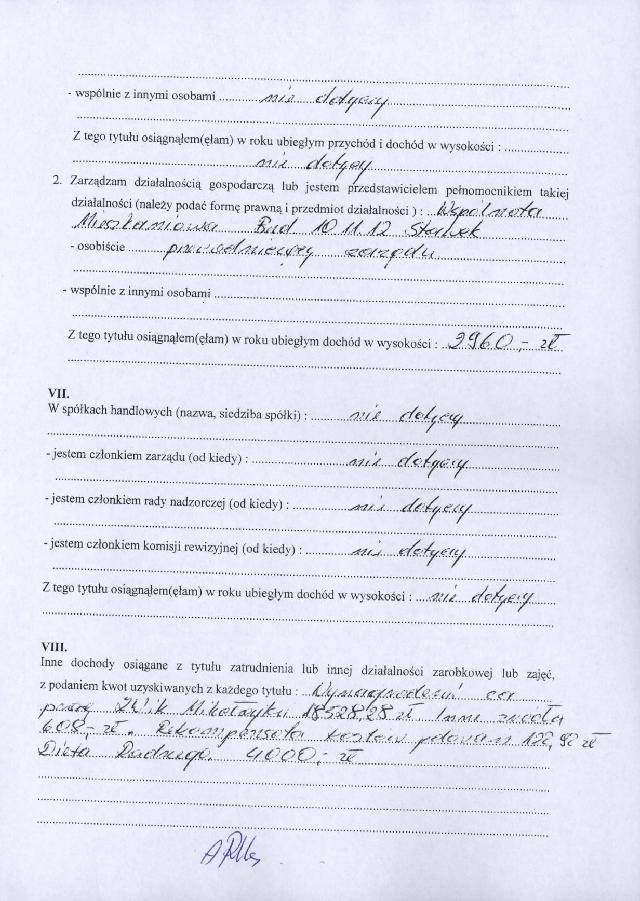 - wspólnie z innymi osobami nie dotyczy
Z tego tytułu osiągnąłem(ęłam) w roku ubiegłym przychód i dochód w wysokości :
nie dotyczy
2. Zarządzam działalnością gospodarczą lub jestem przedstawicielem pełnomocnikiem takiej
działalności (należy podać formę prawną i przedmiot działalności ) : Wspólnota
Mieszkaniowa Bud. 10 11 12
- osobiście przewodniczący zarządu
- wspólnie z innymi osobami
Z tego tytułu osiągnąłem(ęłam) w roku ubiegłym dochód w wysokości : 2960,- zł
VII.
W spółkach handlowych (nazwa, siedziba spółki) : nie dotyczy
- jestem członkiem zarządu (od kiedy) : nie dotyczy
- jestem członkiem rady nadzorczej (od kiedy) : nie dotyczy
- jestem członkiem komisji rewizyjnej (od kiedy) : nie dotyczy
Z tego tytułu osiągnąłem(ęłam) w roku ubiegłym dochód w wysokości : nie dotyczy
VIII.
Inne dochody osiągane z tytułu zatrudnienia lub innej działalności zarobkowej lub zajęć,
z podaniem kwot uzyskiwanych z każdego tytułu : Wynagrodzenie za
pracę ZWiK Mikołajki 18528,28 zł Inne źródła
608,- zł. Rekompensata kosztów 122,92 zł
Dieta Radnego. 4000,- zł